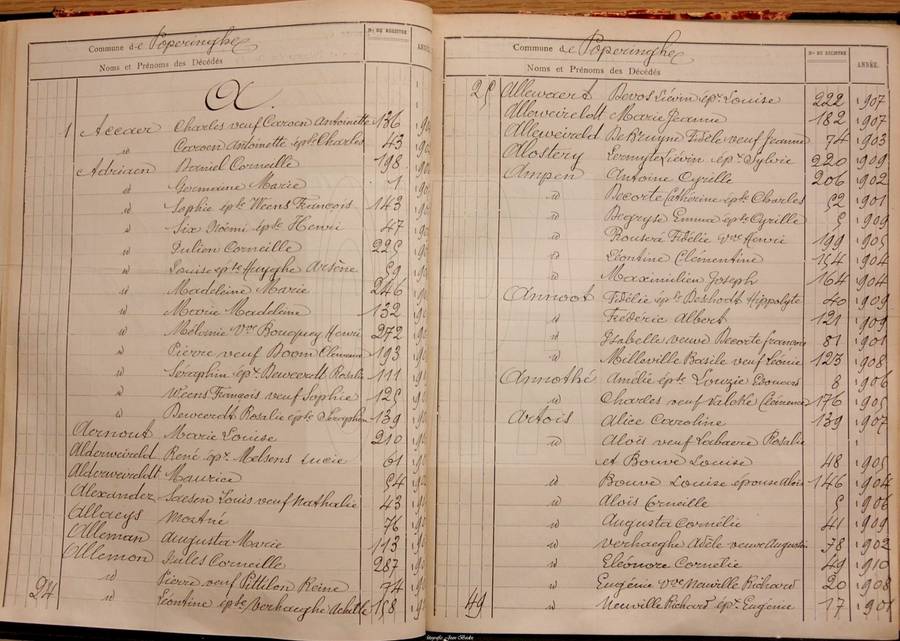 Commune de Poperinghe
Noms et Prénoms des Décédés
Nos DU REGISTRE
ANNÉE
A.
1 Accaer Charles veuf Caroen Antoinette 136
id Caroen Antoinette épse Charles 43
Adriaen Daniel Corneille 198
id Germaine Marie 1
id Sophie épse Weens François 143
id Six Noëmi épse Henri 47
id Julien Corneille 225
id Louise épse Huyghe Arsène 59
id Madeleine Marie 246
id Marie Madeleine 132
id Mélanie Vve Bouquey Henri 272
id Pierre veuf Boom 193
id Séraphin épx Deweerdt Rosalie 111
id Weens François veuf Sophie 125
id Deweerdt Rosalie épse Séraphin 139
Aernout Marie Louise 210
Alderweireld René épx Melsens Lucie 61
Alderweireldt Maurice 54
Alexander Saesen Louis veuf Nathalie 43
Allaeys Mort né 76
Alleman Augusta Marie 113
Allemon Jules Corneille 287
id Pierre veuf Pittilon Reine 74
24 id Léontine épse Verhaeghe Achille 158
Commune de Poperinghe
Noms et Prénoms des Décédés
Nos DU REGISTRE
ANNÉE.
25 Allewaert Devos Liévin épx Louise 222 1907
Alleweireldt Marie Jeanne 182 1907
Alleweireld De Bruyne Fidèle veuf Jeanne 74 1903
Alostery Lermyte Liévin épx Sylvie 220 1909
Ampen Antoine Cyrille 206 1902
id Decorte Catherine épse Charles 52 1901
id Degryse Emma épse Cyrille 5 1909
id Rouseré Fidélie Vve Henri 199 1905
id Léontine Clémentine 154 1904
id Maximilien Joseph 164 1904
Annoot Fidélie épse Deshodt Hippolyte 40 1909
id Frédéric Albert 121 1909
id Isabelle veuve Decorte François 81 1901
id Milleville Basile veuf Léonie 123 1908
Annothé Amélie épse Louzie Edouard 8 1906
id Charles veuf Valcke Clémence 176 1905
Artois Alice Caroline 139 1907
id Aloïs veuf Labaere Rosalie
et Bouve Louise 48 1905
id Bouve Louise épouse Aloïs 146 1904
id Aloïs Corneille 5 1906
id Augusta Cornélie 41 1909
id Verhaeghe Adèle veuve Augustin 78 1902
id Eléonore Cornelie 49 1910
id Eugénie Vve Neuville Richard 20 1908
49 id Neuville Richard épx Eugénie 17 1901